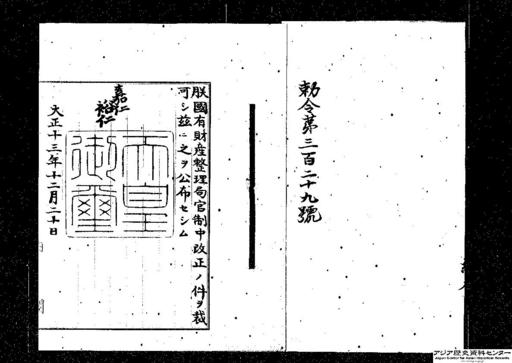 勅令第三百二十九號
朕國有財產整理局官制中改正ノ件ヲ裁
可シ茲ニ之ヲ公布セシム
嘉仁
裕仁
天皇
御璽
大正十三年十二月二十日
アジア歴史資料センター
Japan Center for Asian Historical Records